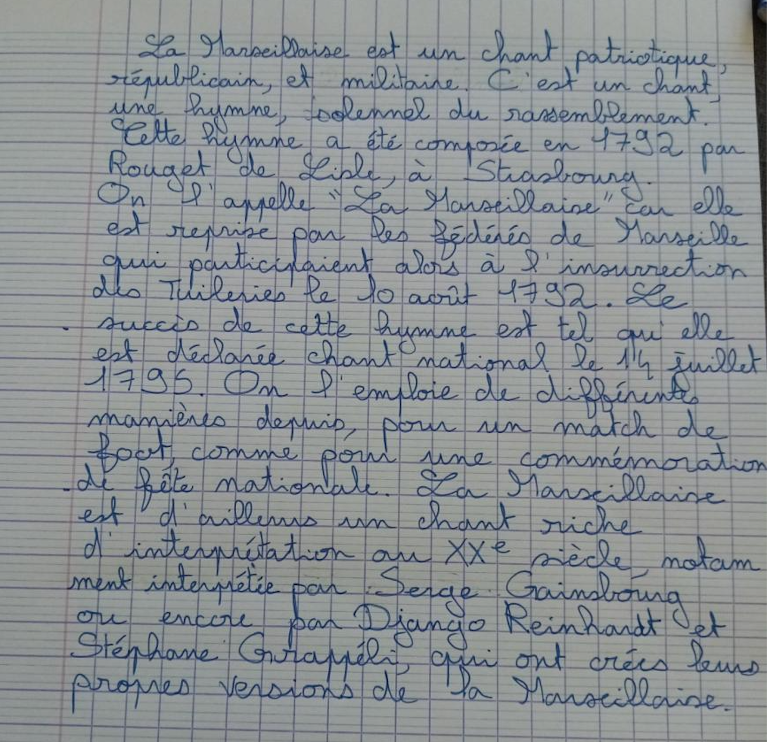 La Marseillaise est un chant patriotique,
républicain, et militaire. C'est un chant,
une hymne, solennel du rassemblement.
Cette hymne a été composée en 1792 par
Rouget de Lisle, à Strasbourg.
On l'appelle "La Marseillaise" car elle
est reprise par les fédérés de Marseille
qui participaient alors à l'insurrection
des Tuileries le 10 août 1792. Le
succès de cette hymne est tel qu'elle
est déclarée chant national le 14 juillet
1795. On l'emploie de différentes
manières depuis, pour un match de
foot, comme pour une commémoration
de fête nationale. La Marseillaise
est d'ailleurs un chant riche
d'interprétation au XXe siècle, notam
ment interprétée par Serge Gainsbourg
ou encore par Django Reinhardt et
Stéphane Grappéli, qui ont créés leurs
propres versions de la Marseillaise.